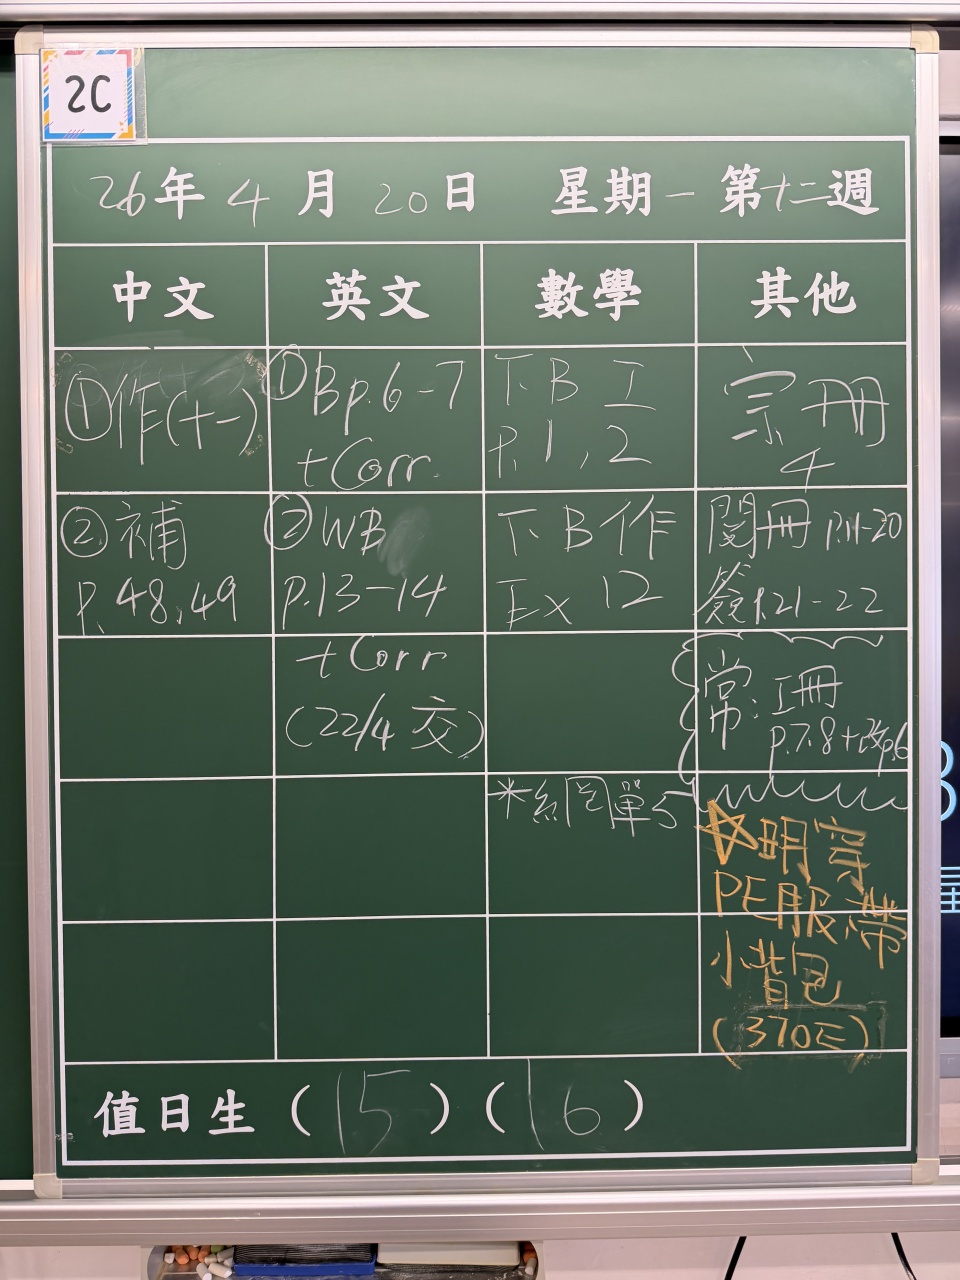 2C
26年4月20日 星期一 第十二週
中文
英文
數學
其他
①作(十一)
②補
p.48,49
①Bp.6-7
+Corr.
②WB
p.13-14
+Corr
(22/4 交)
下B工
p.1,2
下B作
Ex 12
*網图單5
宗冊
4
閱冊 p.11-20
簽p.21-22
常:工冊
p.7.8+改p.6
☆明穿
PE服帶
小背包
(370三)
值日生 (15) (16)